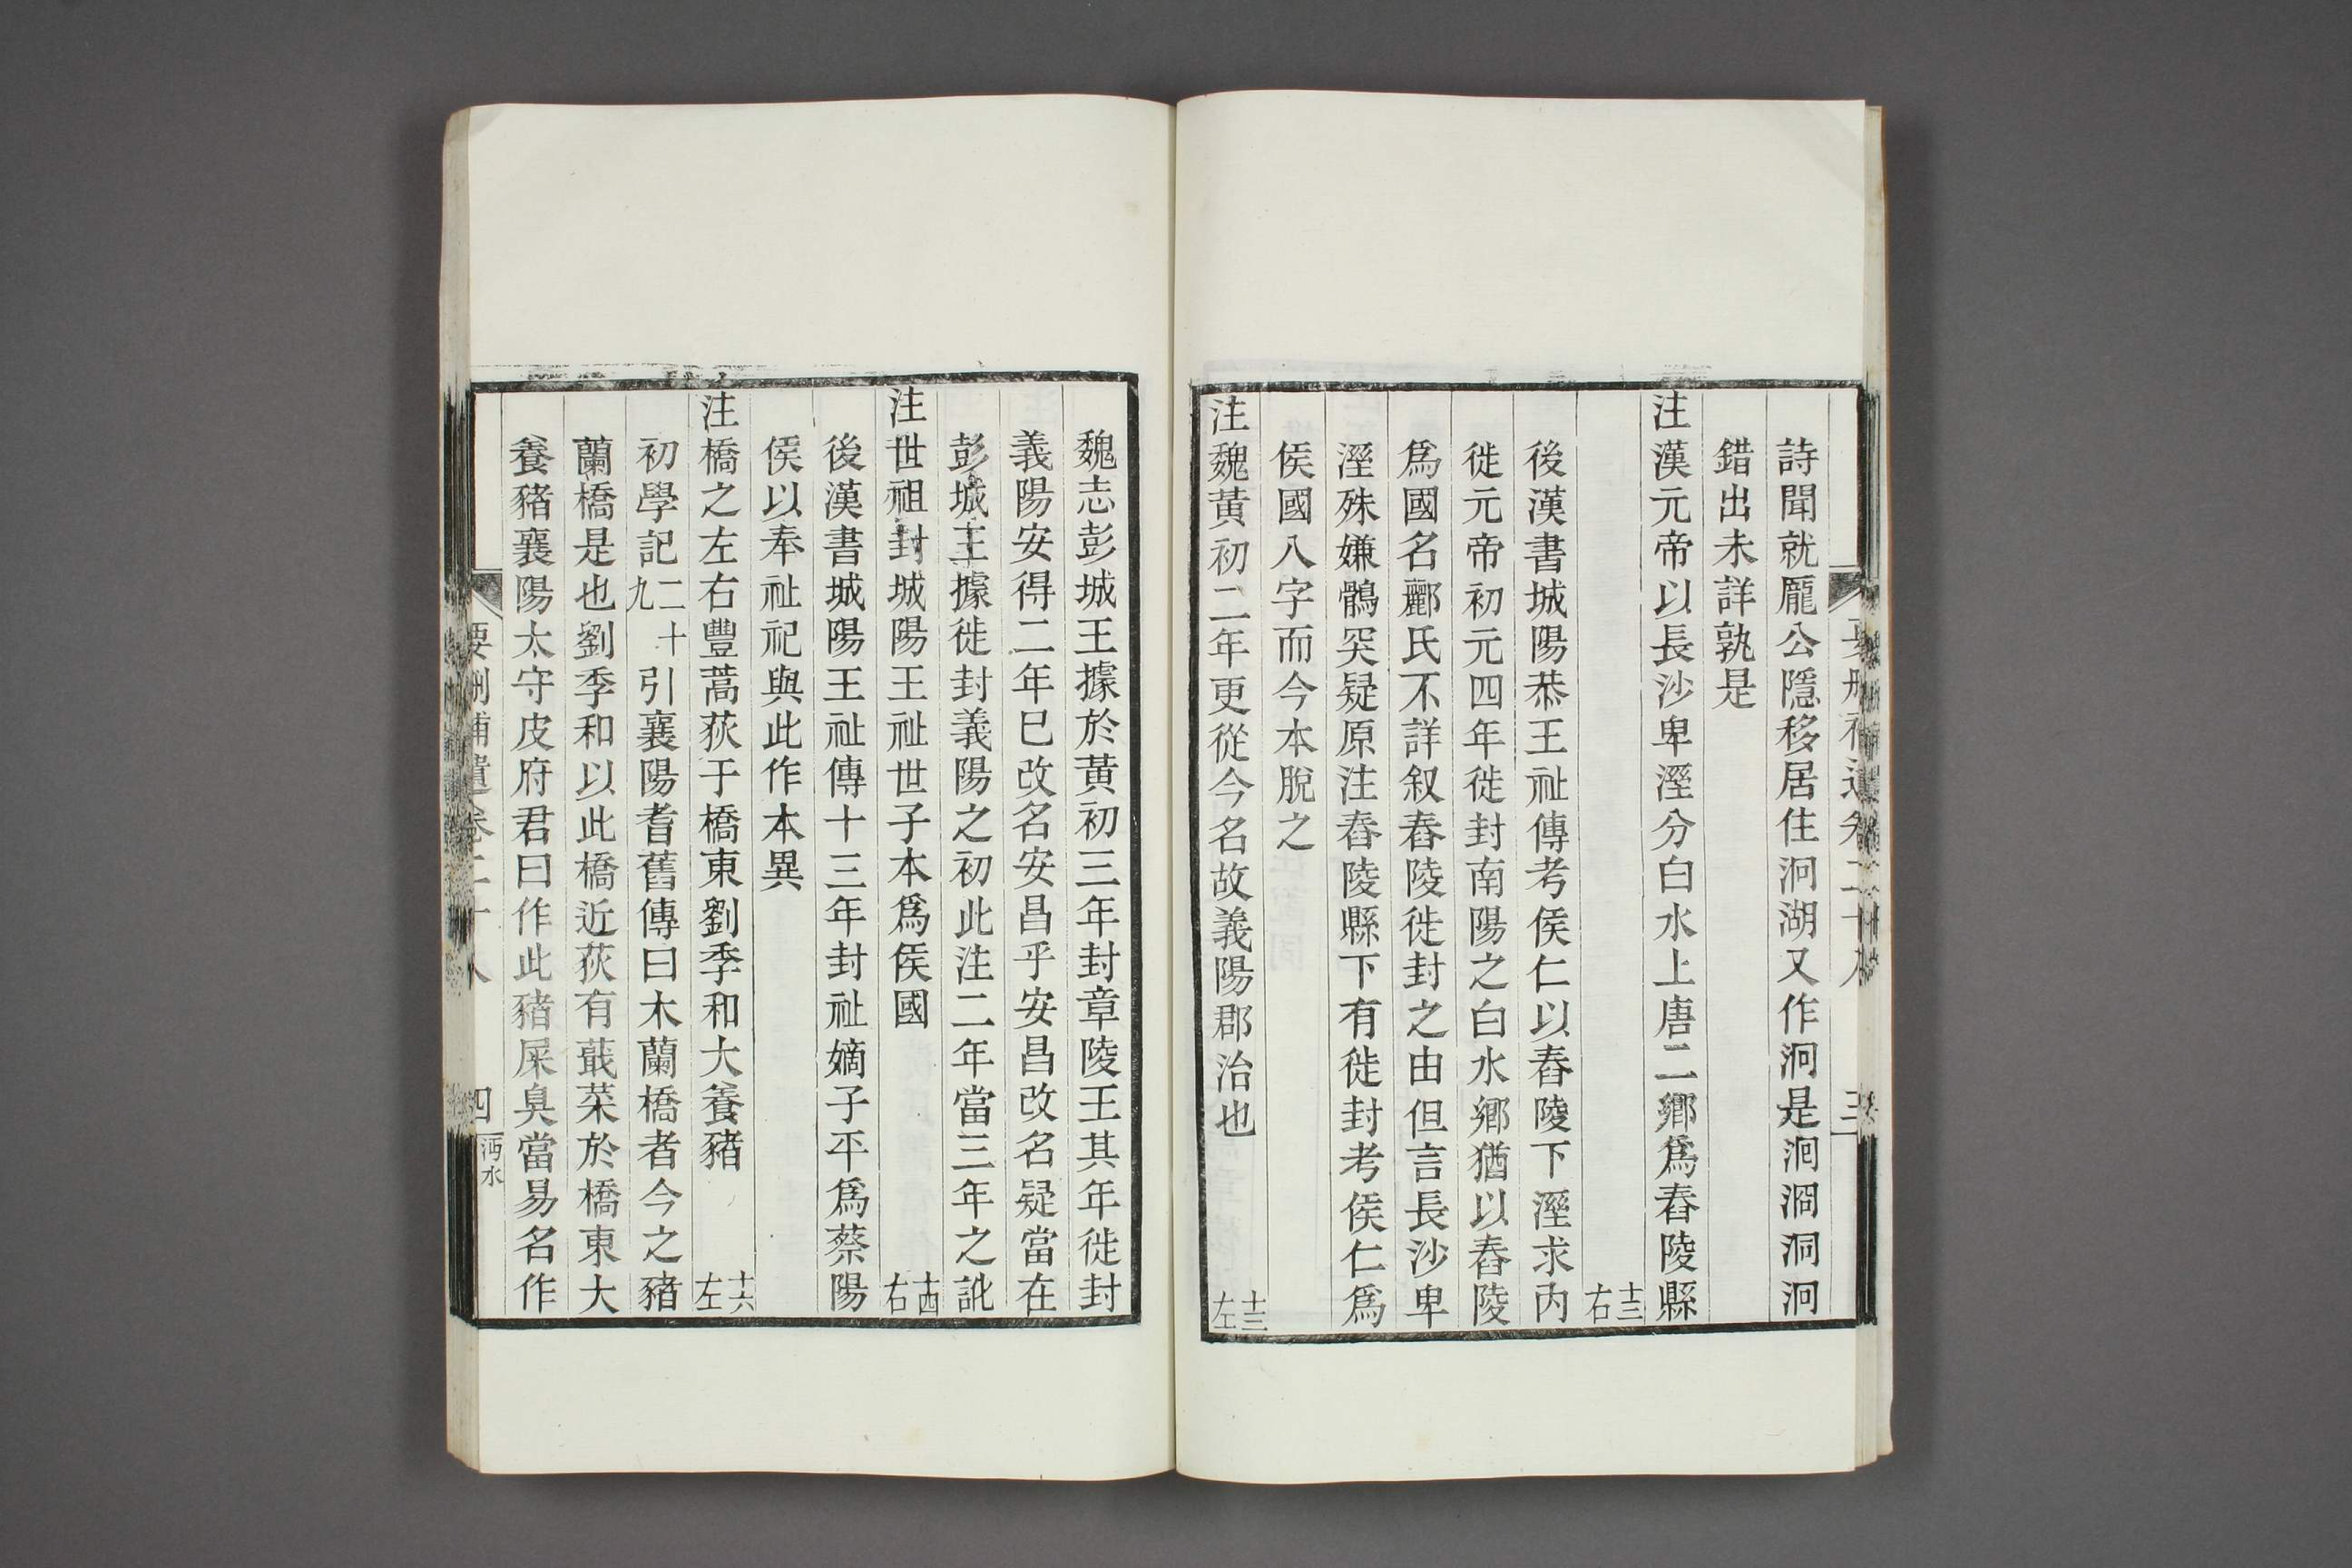 詩聞就龎公隱移居住泂湖又作泂是洄涸洞泂
錯出未詳孰是
注漢元帝以長沙卑溼分白水上唐二鄉爲舂陵縣
十三右
後漢書城陽恭王祉傳考侯仁以舂陵下溼求內
徙元帝初元四年徙封南陽之白水鄉猶以舂陵
爲國名酈氏不詳叙舂陵徙封之由但言長沙卑
溼殊嫌鶻突疑原注舂陵縣下有徙封考侯仁爲
侯國八字而今本脫之
注魏黃初二年更從今名故義陽郡治也 十三左
魏志彭城王據於黃初三年封章陵王其年徙封
義陽安得二年巳改名安昌乎安昌改名疑當在
彭城王據徙封義陽之初此注二年當三年之訛
注世祖封城陽王祉世子本爲侯國 十四右
後漢書城陽王祉傳十三年封祉嫡子平爲蔡陽
侯以奉祉祀與此作本異
注橋之左右豐蒿荻于橋東劉季和大養豬 十六左
初學記二十九引襄陽耆舊傳曰木蘭橋者今之豬
蘭橋是也劉季和以此橋近荻有蕺菜於橋東大
養豬襄陽太守皮府君曰作此豬屎臭當易名作
要刪補遺卷二十八 四 沔水